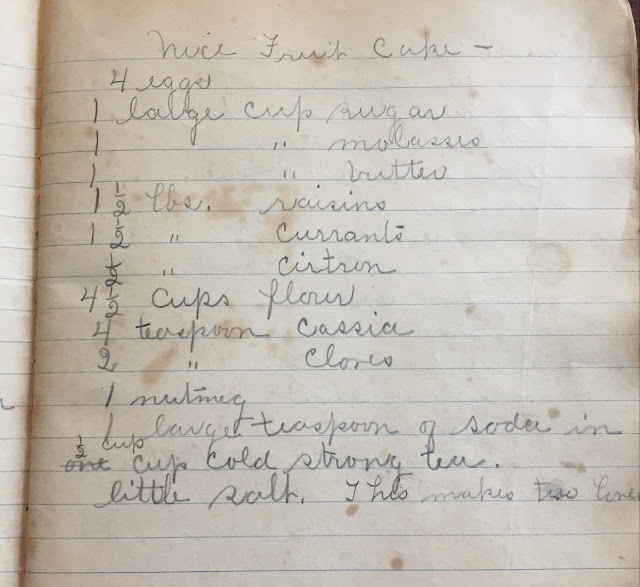 Nice Fruit Cake —
4 eggs
1 large cup sugar
1 " molasses
1 " butter
1 1/2 lbs. raisins
1 1/2 " currants
1/2 " cirtron
4 1/2 cups flour
4 teaspoon cassia
2 " cloves
1 nutmeg
1 large teaspoon of soda in
1/2 cup
one cup cold strong tea.
little salt. This makes two